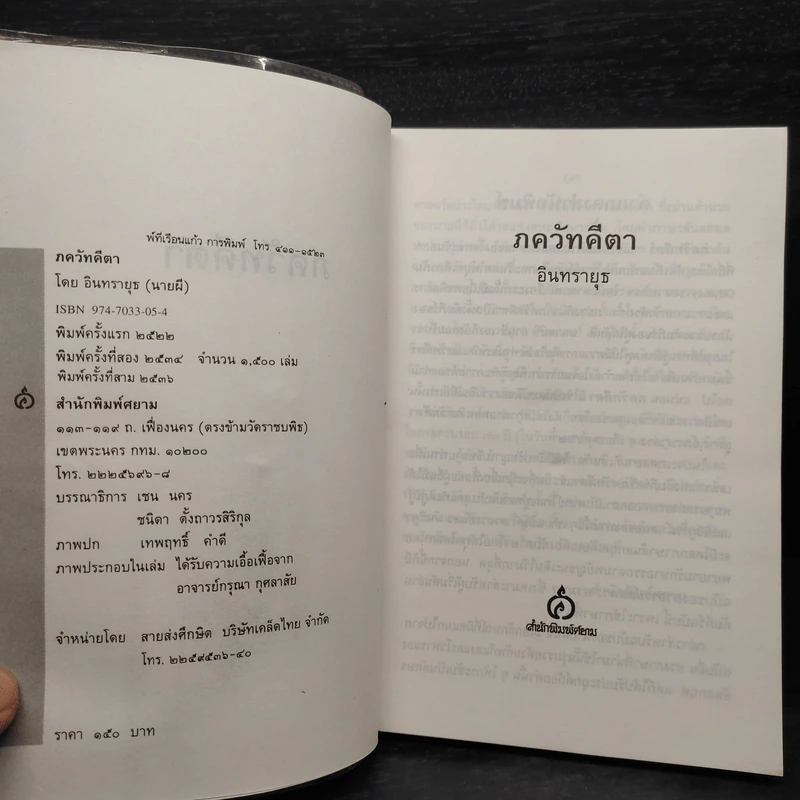 พ์ที่เรือนแก้ว การพิมพ์ โทร. ๔๑๑-๑๕๒๓
ภควัทคีตา
โดย อินทรายุธ (นายผี)
ISBN 974-7033-05-4
พิมพ์ครั้งแรก ๒๕๒๒
พิมพ์ครั้งที่สอง ๒๕๓๔ จำนวน ๑,๕๐๐ เล่ม
พิมพ์ครั้งที่สาม ๒๕๓๖
สำนักพิมพ์ศยาม
๑๑๓-๑๑๙ ถ. เฟื่องนคร (ตรงข้ามวัดราชบพิธ)
เขตพระนคร กทม. ๑๐๒๐๐
โทร. ๒๒๒๕๖๙๖-๘
บรรณาธิการ เชน นคร
ชนิดา ตั้งถาวรสิริกุล
ภาพปก เทพฤทธิ์ คำดี
ภาพประกอบในเล่ม ได้รับความเอื้อเฟื้อจาก
อาจารย์กรุณา กุศลาสัย
จำหน่ายโดย สายส่งศึกษิต บริษัทเคล็ดไทย จำกัด
โทร. ๒๒๕๙๕๓๖-๔๐
ราคา ๑๕๐ บาท
ภควัทคีตา
อินทรายุธ
สำนักพิมพ์ศยาม